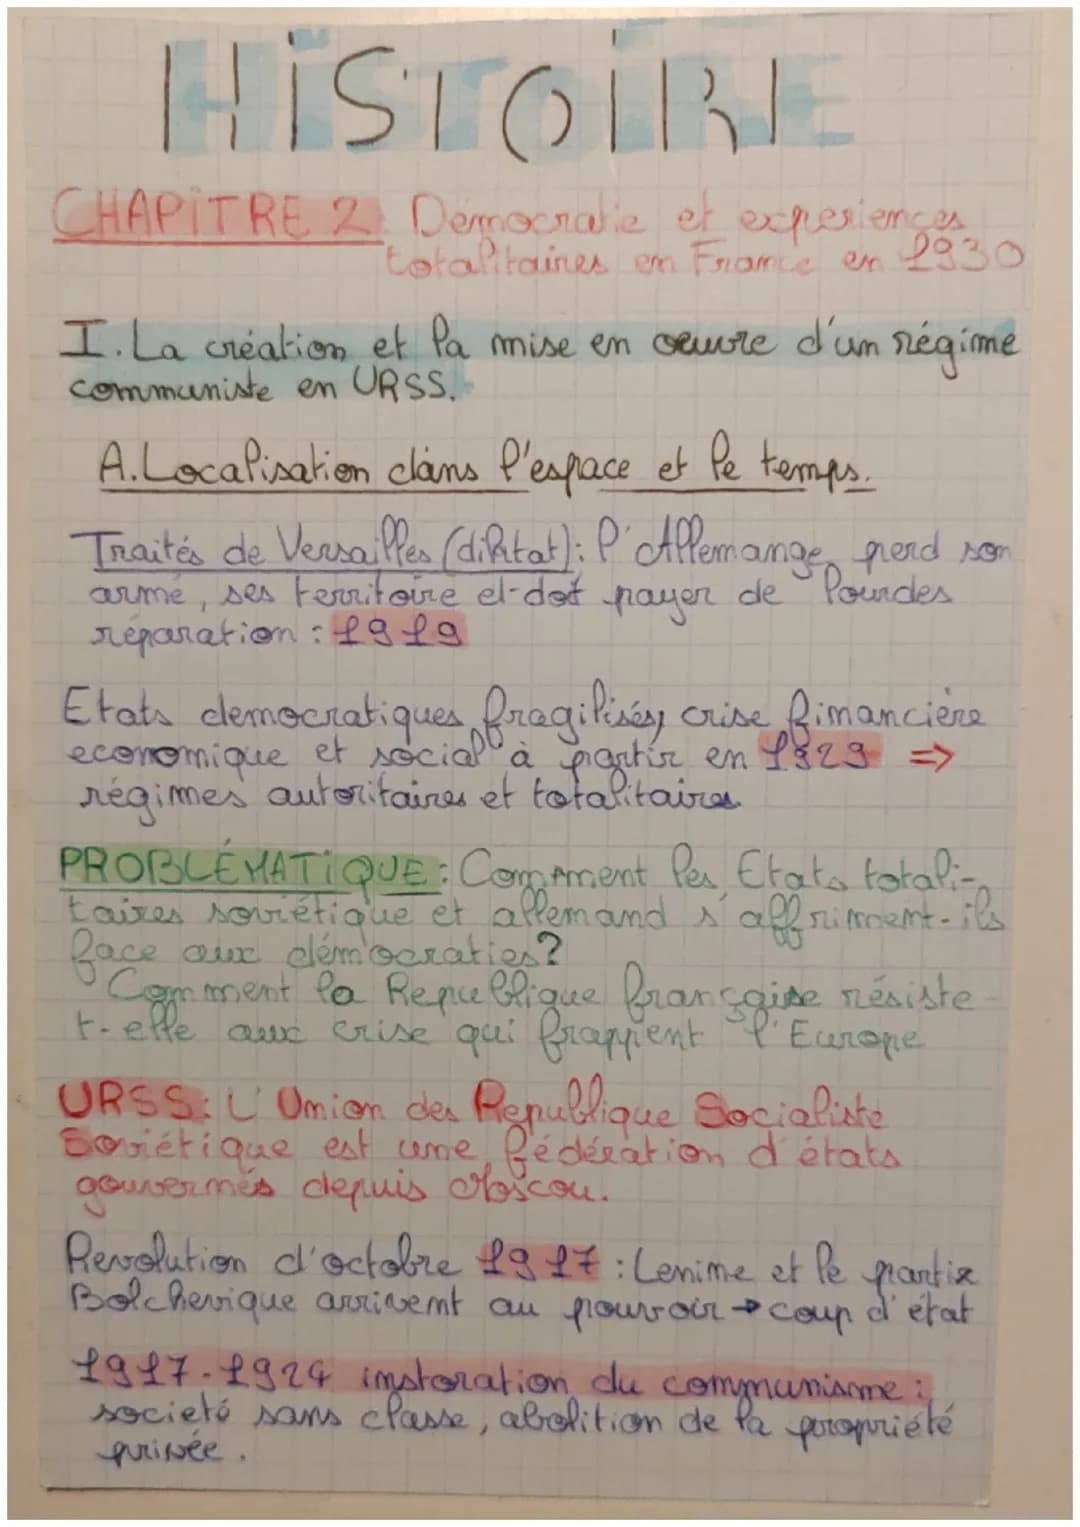 HiSTOiRE
CHAPiTRE 2: Démocratie et experiences
totalitaires en France en 1930
I. La création et la mise en oeuvre d'un régime
communiste en URSS.
A. Localisation dans l'espace et le temps.
Traités de Versailles (diktat): l'Allemange perd son
armé, ses territoire et dot payer de lourdes
réparation : 1919
Etats democratiques fragilisés, crise financière
economique et social à partir en 1929 =>
régimes autoritaires et totalitaires
PROBLÉMATiQUE: Comment les Etats totali-
taires soviétique et allemand s'affriment-ils
face aux démocraties?
Comment la Republique française résiste-
t-elle aux crise qui frappent l'Europe
URSS: L'Union des Republique Socialiste
Soviétique est une fédération d'états
gouvernés depuis Moscou.
Revolution d'octobre 1917 : Lenine et le partix
Bolchevique arrivent au pouvoir → coup d'état
1917-1924 instoration du communisme :
societé sans classe, abolition de la propriété
privée.